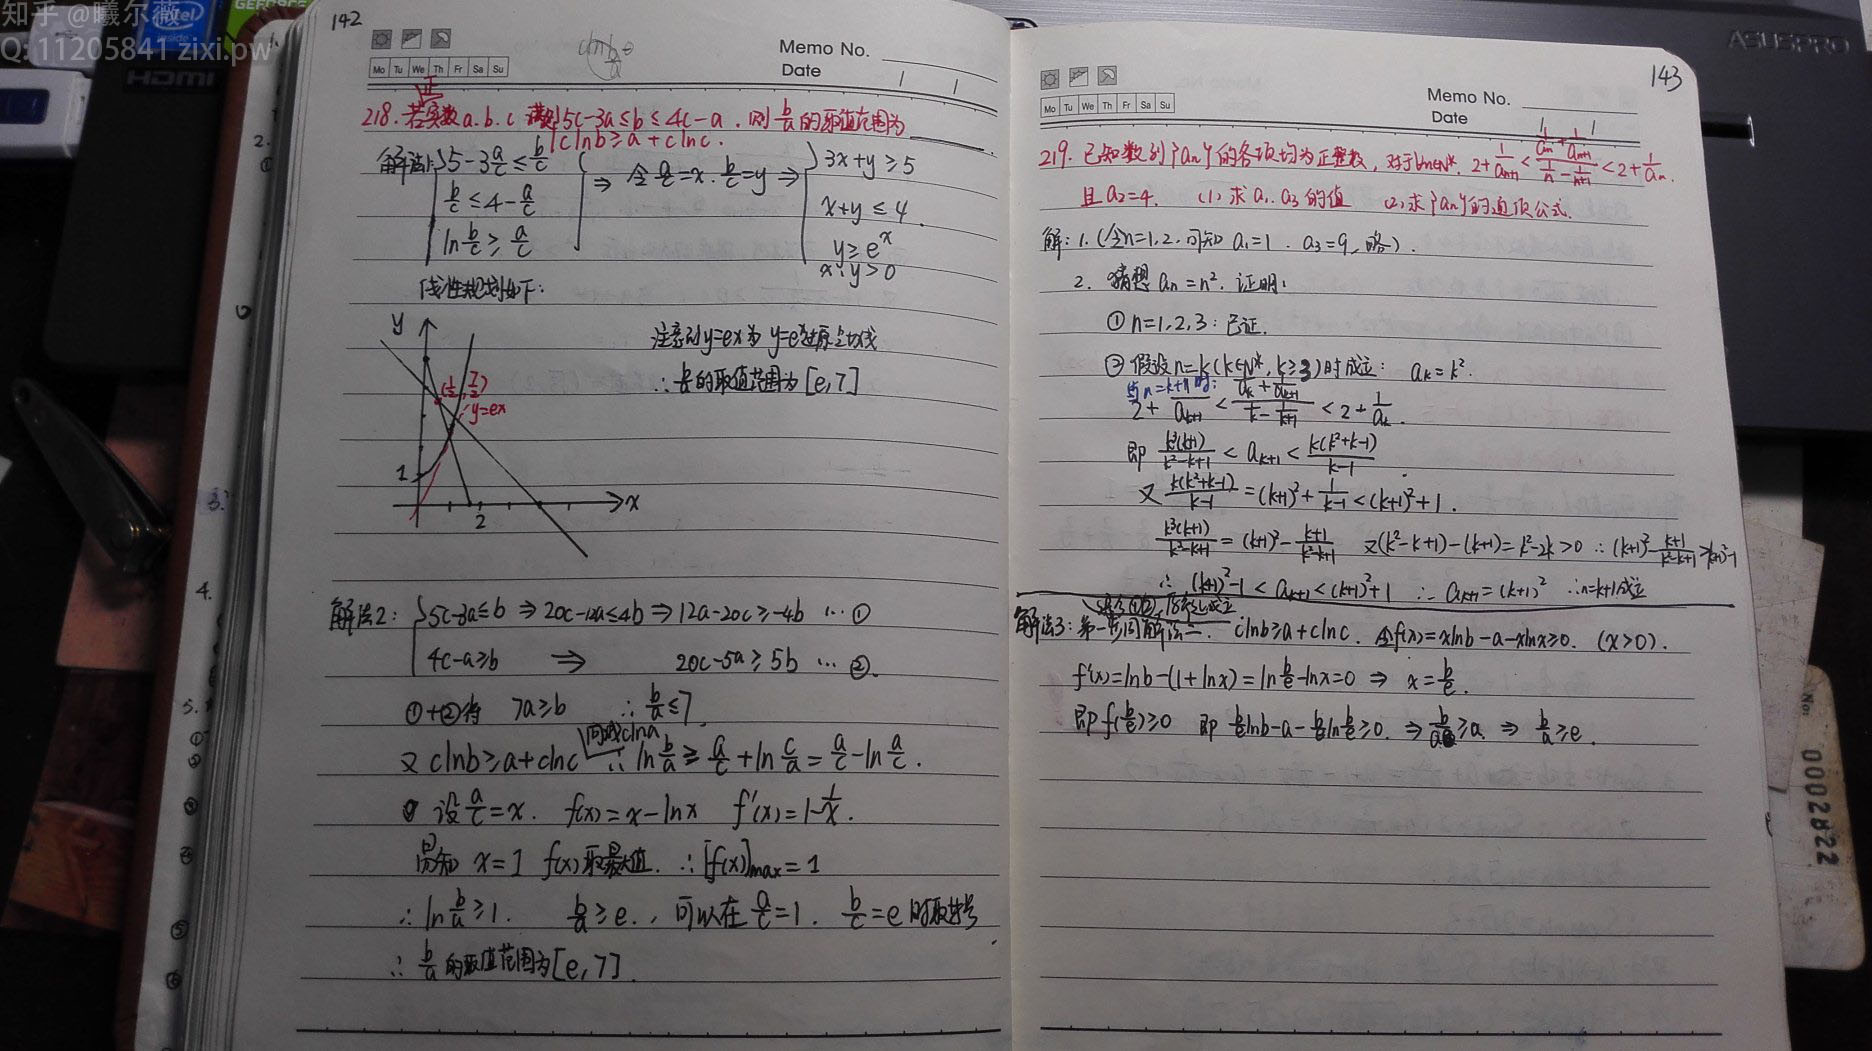 知乎 @曦尔薇
Q: 11205841 zixi.pw
intel
inside
GEFORCE
HDMI
ASUSPRO
142
Memo No.
Date
Mo Tu We Th Fr Sa Su
218. 若正实数a.b.c 满足{5c-3a≤b≤4c-a. 则 b/a 的取值范围为
clnb≥a+clnc.
解法1: {5-3a/c≤b/c
b/c≤4-a/c
ln b/c≥a/c
⇒ 令 a/c=x. b/c=y ⇒ {3x+y≥5
x+y≤4.
y≥e^x
x,y>0
线性规划如下:
y
(1/2, 7/2)
y=ex
1
2
x
注意到y=ex为 y=e^x过原点切线
∴ b/a的取值范围为[e,7]
解法2: {5c-3a≤b ⇒ 20c-12a≤4b ⇒ 12a-20c≥-4b … ①
4c-a≥b ⇒ 20c-5a≥5b … ②.
①+②得 7a≥b ∴ b/a≤7.
同减clna
又 clnb≥a+clnc ∴ ln b/a≥a/c+ln c/a=a/c-ln a/c.
设 a/c=x. f(x)=x-lnx f'(x)=1-1/x.
易知 x=1 f(x)取最大值. ∴ [f(x)]max=1
∴ ln b/a≥1. b/a≥e., 可以在 a/c=1. b/c=e 时取等号.
∴ b/a 的取值范围为[e,7].
143
Memo No.
Date
Mo Tu We Th Fr Sa Su
219. 已知数列{an}的各项均为正整数, 对于∀n∈N*. 2+1/a_{n+1}<(1/a_n+1/a_{n+1})/(1/n-1/(n+1))<2+1/a_n.
且 a2=4. (1) 求 a1. a3 的值 (2) 求{an}的通项公式.
解: 1. (令n=1,2. 可知 a1=1. a3=9, 略).
2. 猜想 an=n². 证明:
① n=1,2,3: 已证.
② 假设 n=k(k∈N*, k≥3)时成立: ak=k².
当n=k+1时:
2+1/a_{k+1}<(1/a_k+1/a_{k+1})/(1/k-1/(k+1))<2+1/a_k.
即 k³(k+1)/(k²-k+1)<a_{k+1}<k(k²+k-1)/(k-1)
又 k(k²+k-1)/(k-1)=(k+1)²+1/(k-1)<(k+1)²+1.
k³(k+1)/(k²-k+1)=(k+1)²-(k+1)/(k²-k+1) 又(k²-k+1)-(k+1)=k²-2k>0 ∴ (k+1)²-(k+1)/(k²-k+1)>(k+1)²-1
∴ (k+1)²-1<a_{k+1}<(k+1)²+1 ∴ a_{k+1}=(k+1)² ∴n=k+1成立
解法3: 第一步同解法二. clnb≥a+clnc. 令f(x)=xlnb-a-xlnx≥0. (x>0).
f'(x)=lnb-(1+lnx)=ln b/e-lnx=0 ⇒ x=b/e.
即 f(b/e)≥0 即 b/e lnb-a-b/e ln b/e≥0. ⇒ b/e≥a. ⇒ b/a≥e.
No: 0002822